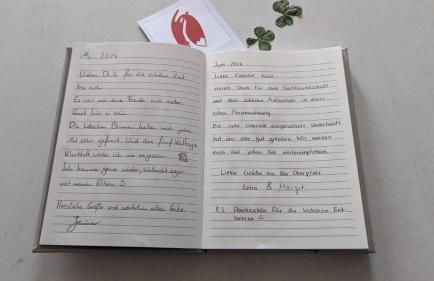 Mai 2024
Vielen Dank für die schöne Zeit
bei euch.
Es war mir eine Freude hier euer
Gast sein zu
Die hübschen Blumen haben mich jeden
Tag sehr gefreut. Und das
werde ich nie vergessen.
Ich komme gerne wieder, vielleicht sogar
mit meinen Eltern :)
Herzliche Grüße und weiterhin alles Gute
Juni 2024
Liebe Familie
vielen Dank für eure Gastfreundschaft
und den schönen Aufenthalt in eurer
tollen Ferienwohnung.
Die sehr liebevoll eingerichtete Unterkunft
hat uns sehr gut gefallen. Wir werden
euch auf jeden Fall weiterempfehlen.
Liebe Grüße aus der Oberpfalz
Lena & Margit
P.S. Dankeschön für die leckeren Erd-
beeren :)